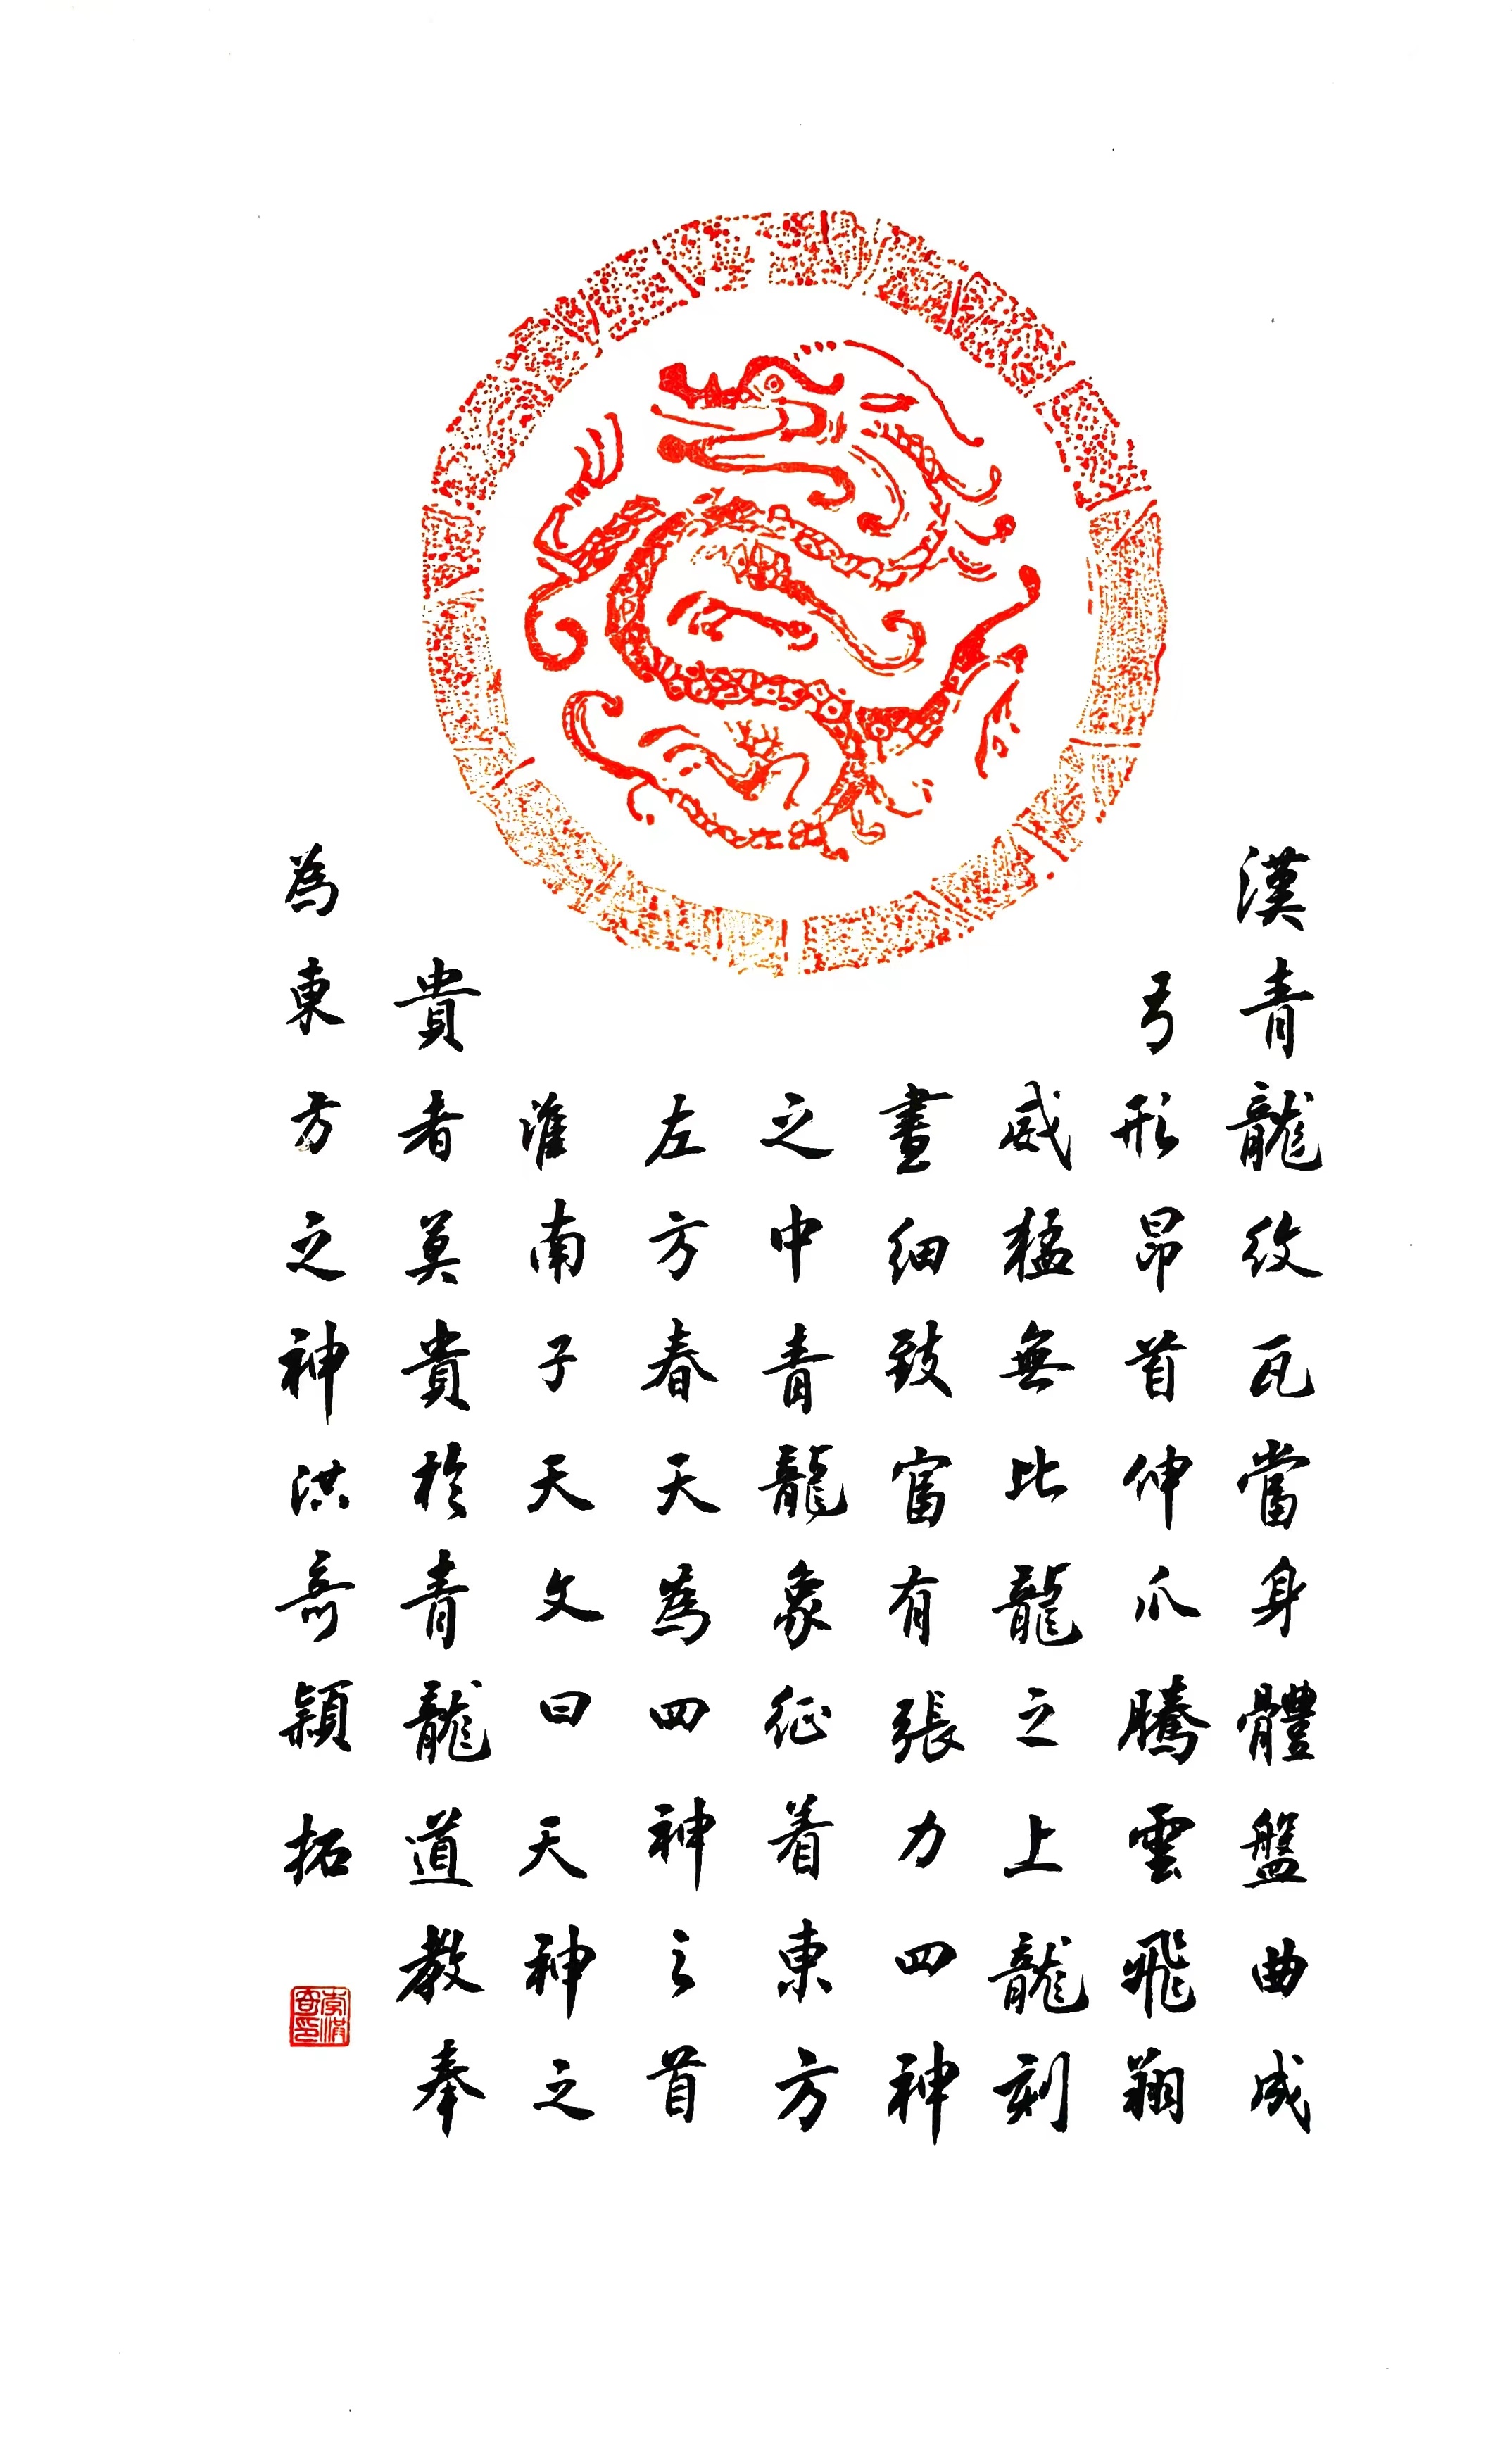 漢青龍紋瓦當身體盤曲成
弓形昂首伸爪騰雲飛翔
威猛無比龍之上龍刻
畫細致富有張力四神
之中青龍象征着東方
左方春天天為四神之首
淮南子天文曰天神之
貴者莫貴於青龍道教奉
為東方之神洪奇穎拓